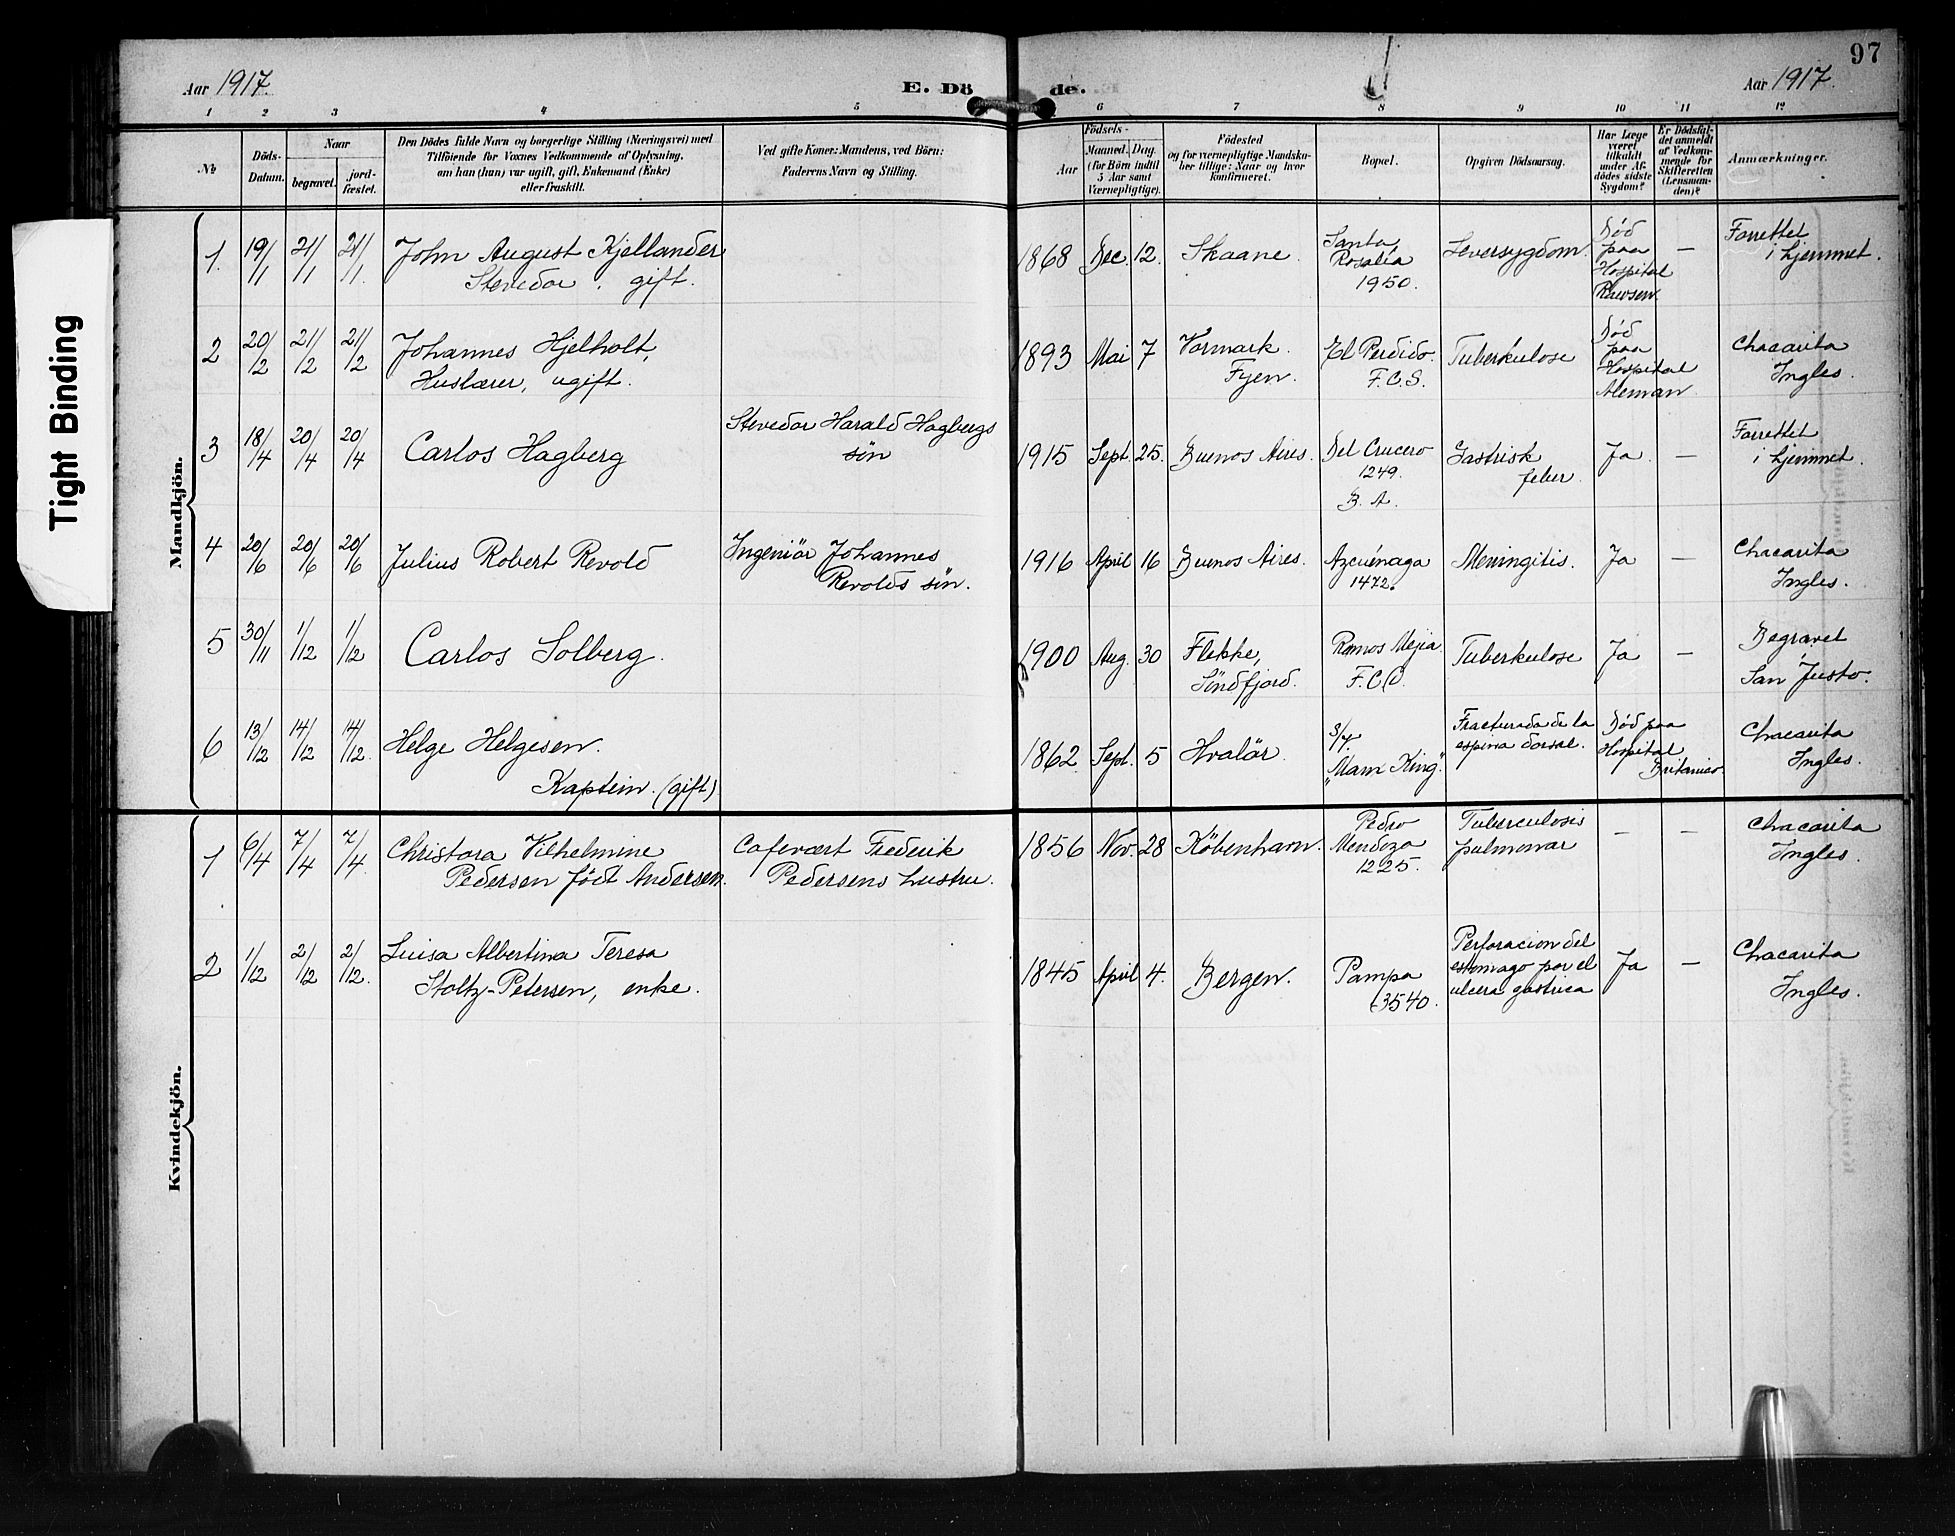 97
Aar 1917.
E. Dö
de.
Aar 1917.
1 2 3 4 5 6 7 8 9 10 11 12
№
Döds-
Datum.
Naar
begravet.
jord-
fæstet.
Den Dödes fulde Navn og borgerlige Stilling (Næringsvei) med
Tilföiende for Voxnes Vedkommende af Oplysning,
om han (hun) var ugift, gift, Enkemand (Enke)
eller fraskilt.
Ved gifte Koner: Mandens, ved Börn:
Faderens Navn og Stilling.
Födsels-
Aar
Maaned.
Dag.
(for Börn indtil
5 Aar samt
Værnepligtige).
Födested
og for værnepligtige Mandsku-
ber tillige: Naar og hvor
konfirmeret.
Bopæl.
Opgiven Dödsaarsag.
Har Læge
været
tilkaldt
under Af-
dödes sidste
Sygdom?
Er Dödsfal-
det anmeldt
af Vedkom-
mende for
Skifteretten
(Lensman-
den)?
Anmærkninger.
Tight Binding
Mandkjön.
1. 19/1 21/1 21/1. John August Kjellander
Stevedor. gift.
1868 Dec. 12. Skaane.
Santa
Rosalia
1950.
Leversygdom.
Död
paa
Hospital
Rawson
—
Forrettet
i hjemmet.
2 20/2 21/2 21/2 Johannes Hjelholt,
Huslærer, ugift.
1893 Mai 7 Vormark
Fyen.
El Perdido.
F.C.S.
Tuberkulose
Död
paa
Hospital
Aleman
Chacarita
Ingles.
3 18/4 20/4 20/4 Carlos Hagberg
Stevedor Harald Hagbergs
sön
1915 Sept. 25. Buenos Aires.
Del Crucero
1249.
B. A.
Gastrisk
feber.
Ja. —
Forrettet
i hjemmet.
4 20/6 20/6 20/6 Julius Robert Revold
Ingeniör Johannes
Revolds sön.
1916 April 16 Buenos Aires.
Azcuénaga
1472.
Meningitis. Ja —
Chacarita
Ingles.
5 30/11 1/12 1/12 Carlos Solberg.
1900 Aug. 30 Flekke,
Söndfjord.
Ramos Mejia
F.C.O.
Tuberkulose Ja —
Begravet
San Justo.
6 13/12 14/12 14/12. Helge Helgesen.
Kaptein. (gift)
1862. Sept. 5 Hvalör.
S/7.
"Mam King."
Fracturada de la
espina dorsal.
Död paa
Hospital
Britanico.
Chacarita
Ingles.
Kvindekjön.
1 6/4 7/4 7/4. Christora Vilhelmine
Pedersen födt Andersen.
Cafevært Frederik
Pedersens hustru.
1856 Nov. 28 Köbenhavn.
Pedro
Mendoza
1225.
Tuberculosis
pulmonar
— —
Chacarita
Ingles.
2 1/12 2/12 2/12. Luisa Albertina Teresa
Stoltz-Petersen, enke.
1845 April 4. Bergen.
Pampa
3540.
Perforacion del
estomago por el
ulcera gastrica
Ja —
Chacarita
Ingles.